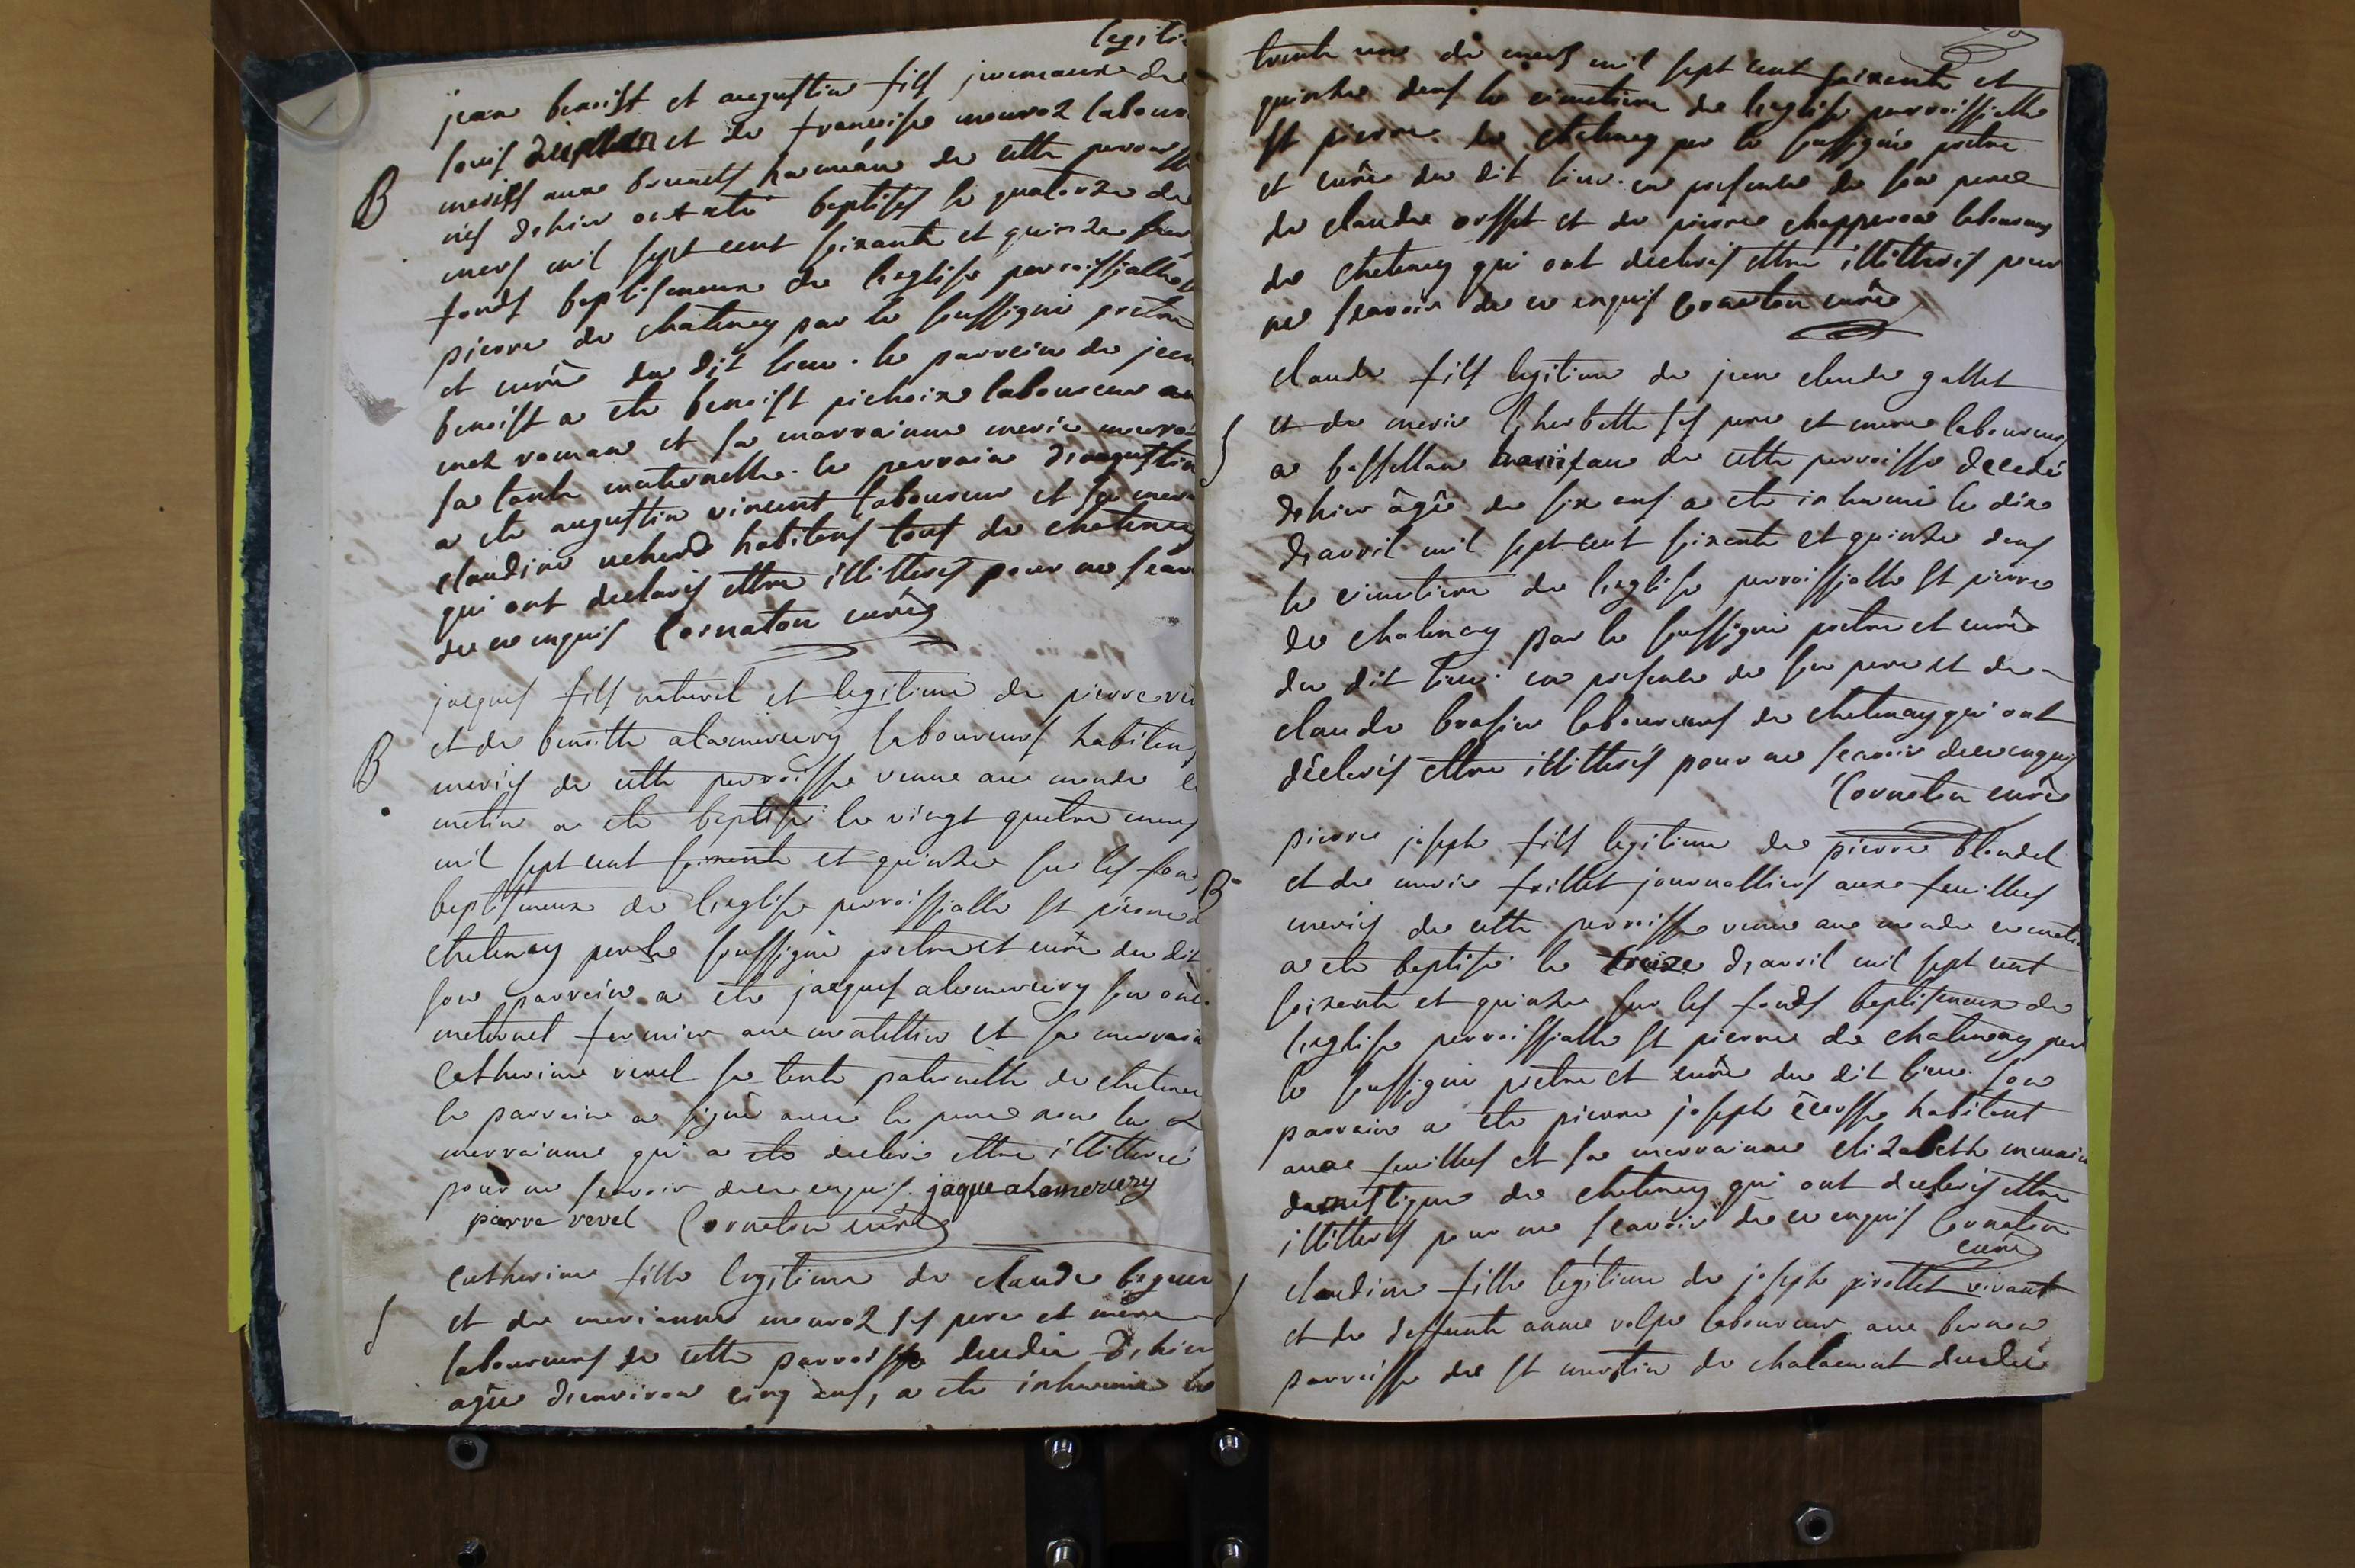 legiti
jean benoist et augustin fils jumeaux de
louis et de francoise mouroz labour
B
mariés aux brunets hameau de cette parroiss
nés d'hier ont été baptisés le quatorze de
mars mil sept cent soixante et quinze sur
fonds baptismaux de l'eglise parroissialle
pierre de chatenay par le soussigné pretre
et curé du dit lieu. le parrein de jean
benoist a eté benoist pichoix laboureur au
mas roman et sa marrainne marie mouro
sa tante maternelle. le parrain d'augustin
a eté augustin vincent laboureur et sa mar
claudine habitans tous de chatenay
qui ont declarés ettre illitterés pour ne scav
de ce enquis Cornaton curé
jacques fils naturel et legitime de pierre re
B
et de benoitte alamercery laboureurs habitans
mariés de cette parroisse venu au monde
matin a eté baptisé le vingt quatre mars
mil sept cent soixente et quinze sur les fon
baptismaux de l'eglise parroissialle st pierre d
chatenay par le soussigné pretre et curé du dit
son parrein a eté jacques alamercery son onc
maternel fermier au matettin et sa marrain
Catherine revel sa tente paternelle de chatenay
le parrein a signé avec le pere non la
marrainne qui a eté declaré ettre illitteré
pour ne scavoir de ce enquis. jaque alamercery
pierre revel Cornaton curé
Catherine fille legitime de claude
S
et de marianne mouroz ses pere et mere
laboureurs de cette parroisse decedée d'hier
agée d'environ cinq ans, a eté inhumée le
trente un de mars mil sept cent soixente et
quinze dans le cimetiere de l'eglise parroissialle
st pierre de chatenay par le soussigné pretre
et curé du dit lieu. en presence de son pere
de claude orsset et de pierre chapperon laboureurs
de chatenay qui ont declarés ettre illitterés pour
ne scavoir de ce enquis Cornaton curé
claude fils legitime de jean claude gallet
S
et de marie l'herbette ses pere et mere laboureurs
a de cette parroisse decedé
d'hier âgé de six ans a eté inhumé le dix
d'avril mil sept cent soixente et quinze dans
le cimetiere de l'eglise parroissialle st pierre
de chatenay par le soussigné pretre et curé
du dit lieu. en presence de son pere et de
claude brasier laboureurs de chatenay qui ont
déclarés ettre illitterés pour ne scavoir de ce enquis
Cornaton curé
pierre joseph fils legitime de pierre blondel
B
et de marie frillet journalliers aux feuilles
mariés de cette parroisse venu au monde ce matin
a eté baptisé le treize d'avril mil sept cent
soixente et quinze sur les fonds baptismaux de
l'eglise parroissialle st pierre de chatenay par
le soussigné pretre et curé du dit lieu. son
parrain a eté pierre joseph écosse habitant
aux feuilles et sa marrainne elizabeth
domestique de chatenay qui ont declarés ettre
illitterés pour ne scavoir de ce enquis Cornaton
curé
S
claudine fille legitime de joseph pirollet vivant
et de deffunte anne volpe laboureur au bernon
parroisse de st martin de chalamont decedée